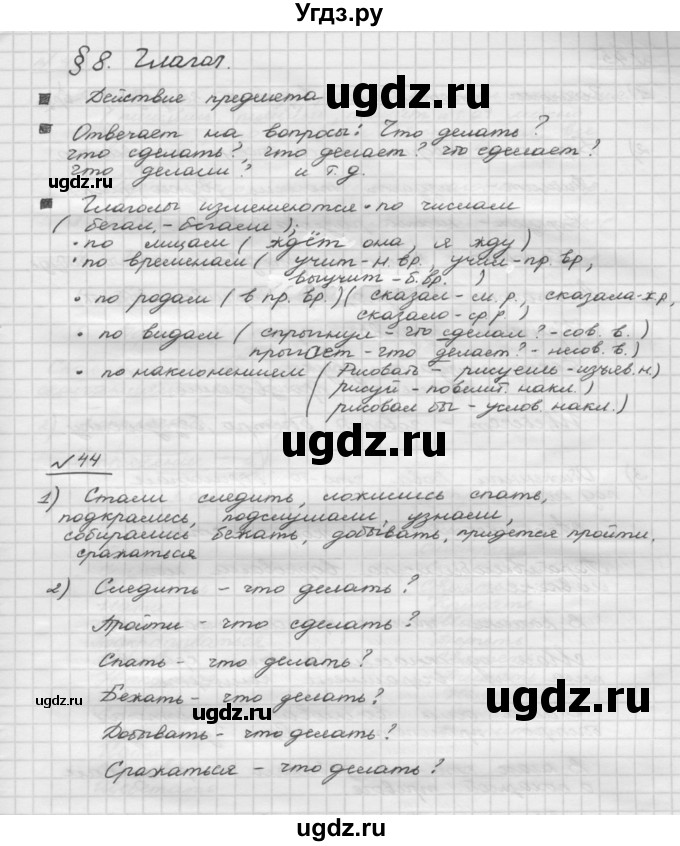 Угдз.ру
§ 8. Глагол.
Действие предмета ugdz.ru
Отвечает на вопросы: Что делать?
что сделать?, что делает? что сделает?
что делали? и т.д.
ugdz.ru
Глаголы изменяются по числам
(бегал, - бегали);
• по лицам (ждёт она, я жду)
• по временам (учит-н.вр., учил-пр.вр,
выучит-б.вр.)
• по родам (в пр. вр.) (сказал-м.р., сказала-ж.р,
сказало-ср.р.)
• по видам (спрыгнул - что сделал? - сов. в.)
прыгает - что делает? - несов. в.)
• по наклонением (Рисовать - рисуешь - изъяв.н.)
(рисуй - повелит. накл.)
(рисовал бы - услов. накл.)
ugdz.ru ugdz.ru
№ 44
1) Стали следить, ложились спать,
подкрались, подслушали, узнали,
собирались бежать, добывать, придется пройти.
сражаться
2) Следить - что делать?
Пройти - что сделать?
Спать - что делать?
Бежать - что делать?
ugdz.ru ugdz.ru ugdz.ru
Добывать - что делать?
Сражаться - что делать?
ugdz.ru